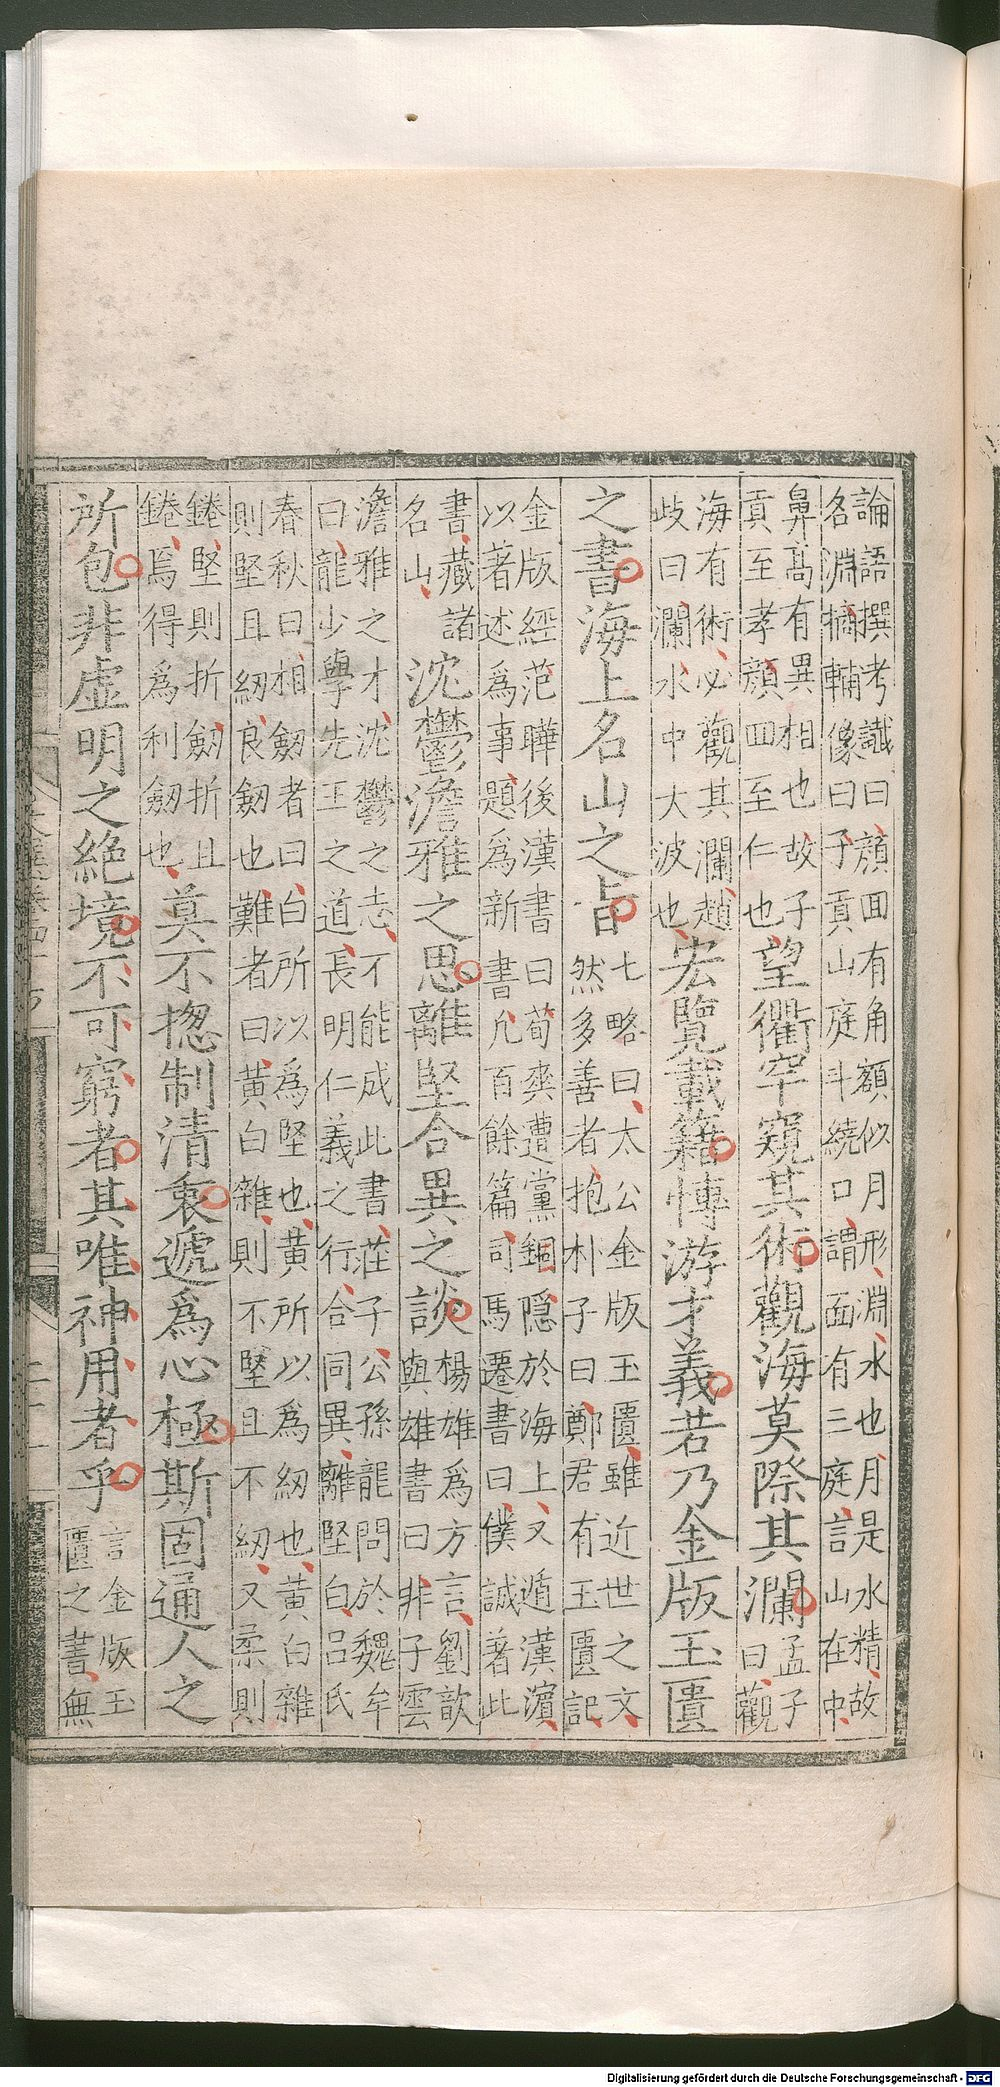 論語撰考讖曰顔回有角額似月形淵水也月是水精故
名淵摘輔像曰子貢山庭斗繞口謂面有三庭言山在中
鼻高有異相也故子
貢至孝顔回至仁也
望衢罕窺其術觀海莫際其瀾
孟子
曰觀
海有術必觀其瀾趙
岐曰瀾水中大波也
宏覽載籍博游才義若乃金版玉匱
之書海上名山之旨
七略曰太公金版玉匱雖近世之文
然多善者抱朴子曰鄭君有玉匱記
金版經范曄後漢書曰荀爽遭黨錮隱於海上又遁漢濵
以著述爲事題爲新書凡百餘篇司馬遷書曰僕誠著此
書藏諸
名山
沈鬱澹雅之思離堅合異之談
楊雄爲方言劉歆
與雄書曰非子雲
澹雅之才沈鬱之志不能成此書莊子公孫龍問於魏牟
曰龍少學先王之道長明仁義之行合同異離堅白吕氏
春秋曰相劒者曰白所以爲堅也黃所以爲紉也黃白雜
則堅且紉良劒也難者曰黃白雜則不堅且不紉又柔則
錈堅則折劒折且
錈焉得爲利劒也
莫不揔制清衷遞爲心極斯固通人之
所包非虚明之絶境不可窮者其唯神用者乎
言金版玉
匱之書無
Digitalisierung gefördert durch die Deutsche Forschungsgemeinschaft - DFG